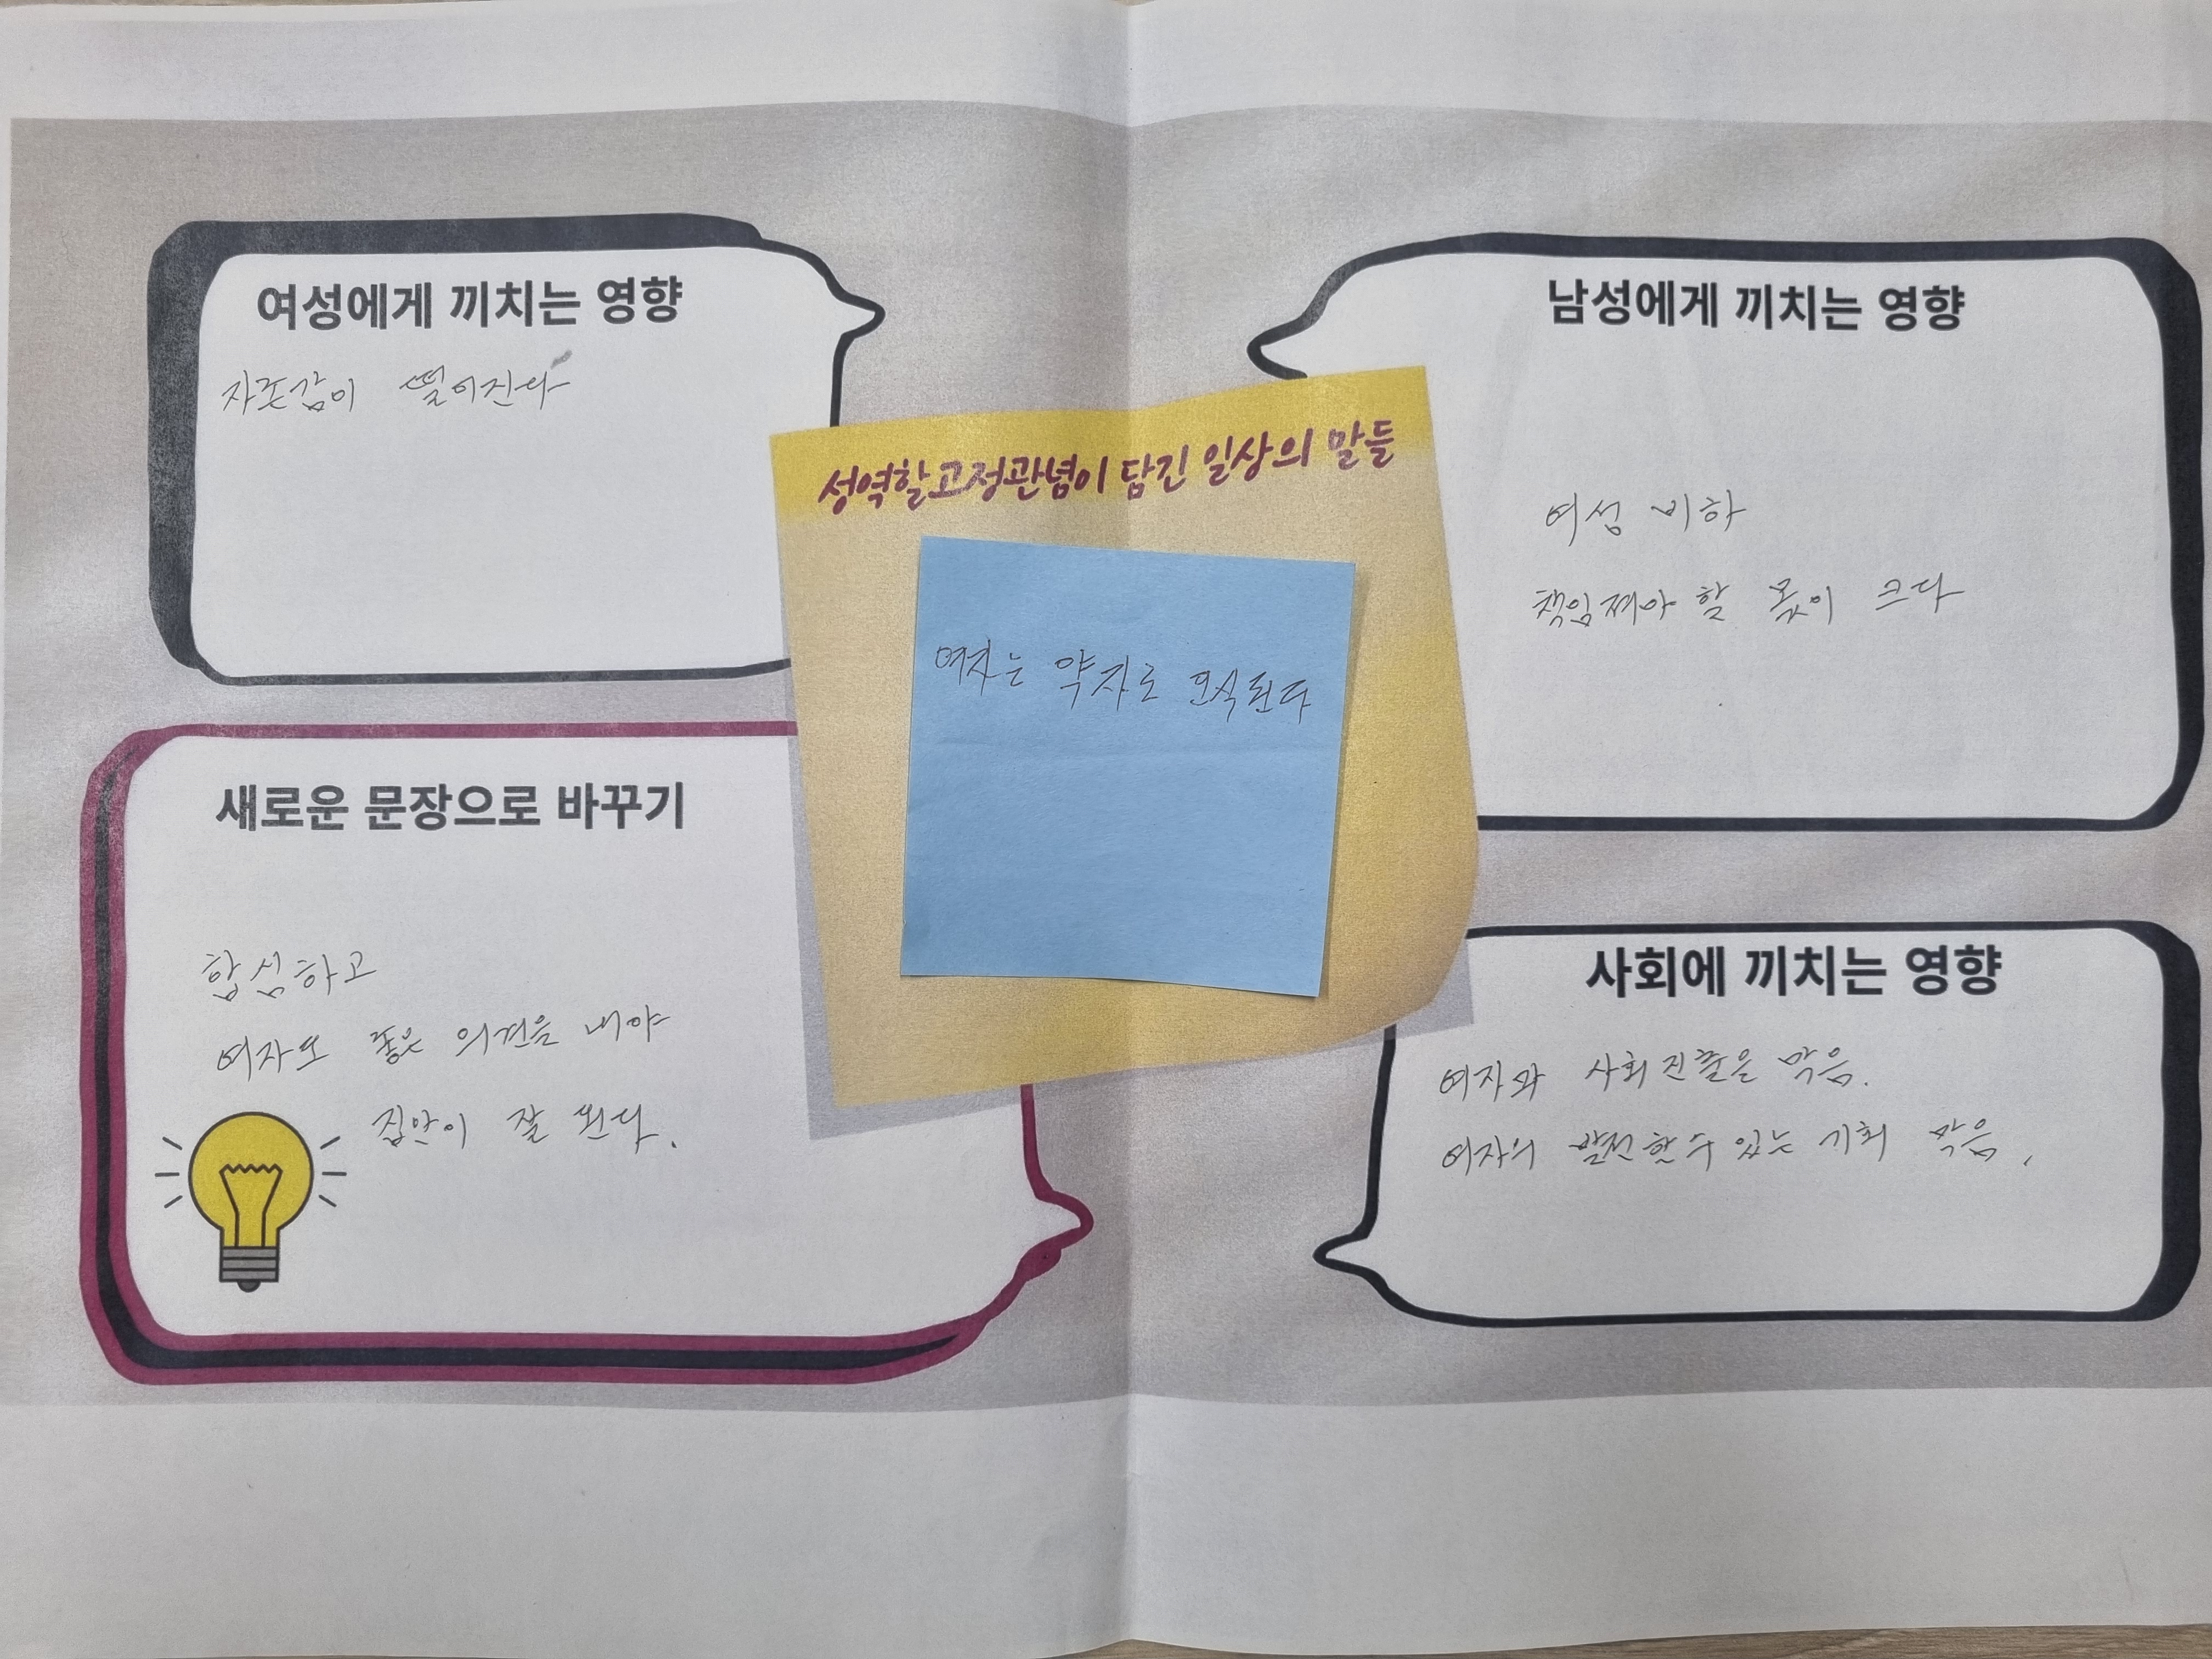 여성에게 끼치는 영향
자존감이 떨어진다
남성에게 끼치는 영향
여성 비하
책임져야 할 몫이 크다
성역할고정관념이 담긴 일상의 말들
여자는 약자로 인식된다
새로운 문장으로 바꾸기
합심하고
여자도 좋은 의견을 내야
집안이 잘 된다.
사회에 끼치는 영향
여자의 사회진출을 막음.
여자의 발전할수 있는 기회 막음.